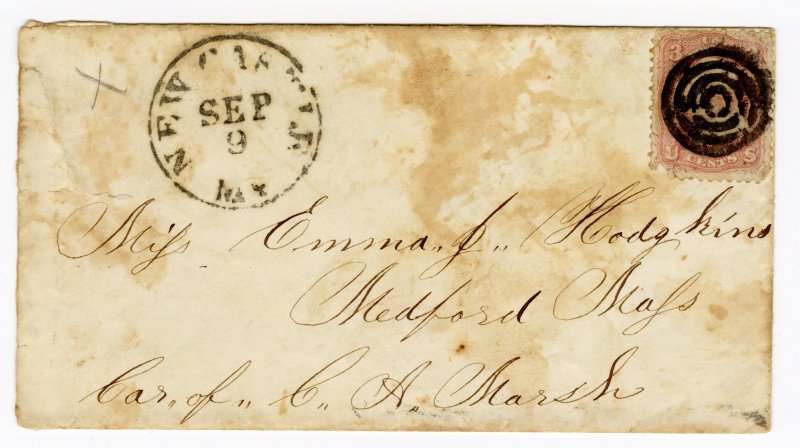 NEWCASTLE
SEP
9
3
U
CENTS
Miss Emma,, J,, Hodgkins
Medford Mass
Car,, of,, C,, A, Marsh